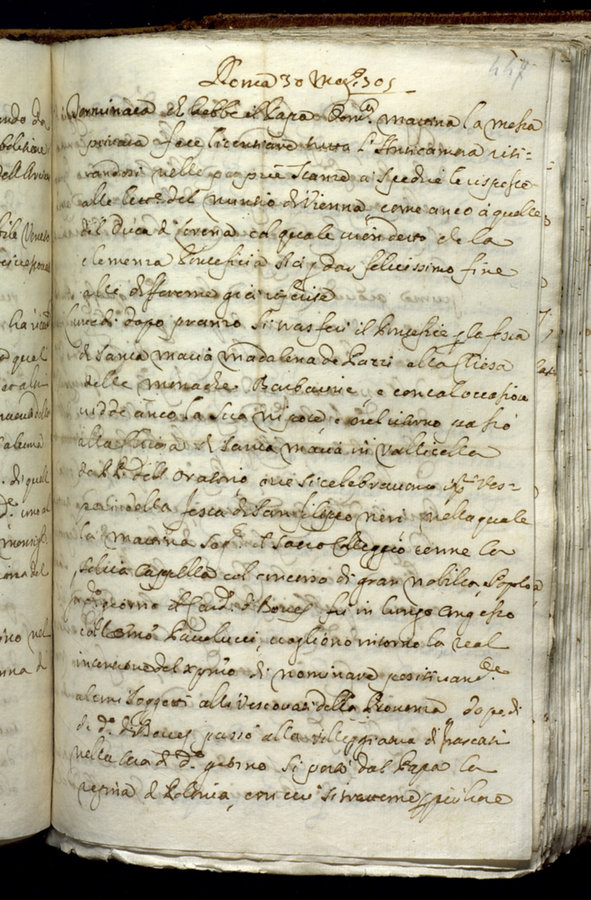 447
Roma 30 Mag.o 1705
Terminata ch'hebbe il Papa Dom.ca mattina la messa
privata fece licentiare tutta l'Anticamera riti-
randosi nelle proprie stanze a spedire le risposte
alle lett.e del nuntio di Vienna come anco à quelle
del Duca di Lorena col quale vien detto che la
clemenza Pontificia sij p dar felicissimo fine
alle differenze giurisditie
Lunedi dopo pranzo si trasferi il Pontefice p la festa
di Santa Maria Madalena de Pazzi alla Chiesa
delle monache Barbarine, e con tal occasione
vidde anco la sua nipote e nel ritorno passò
alla Chiesa di Santa Maria in Vallicella
de PP. dell'Oratorio ove si celebravano i p.i Ves-
pri della festa di San Filippo neri nella quale
la mattina seg.te il Sacro Colleggio tenne la
solita Cappella col concorso di gran nobiltà, e Popolo
giorno il Card. di in lungo congresso
col Paulucci, vogliono intorno la real
intentione del di nominare positivam.te
alcuni soggetti alli Vescovati della dopo di
che d.o di passò alla Villeggiatura di Frascati
nella sera di d.o giorno si portò dal Papa la
regina di Polonia, con cui si trattenne p più hore